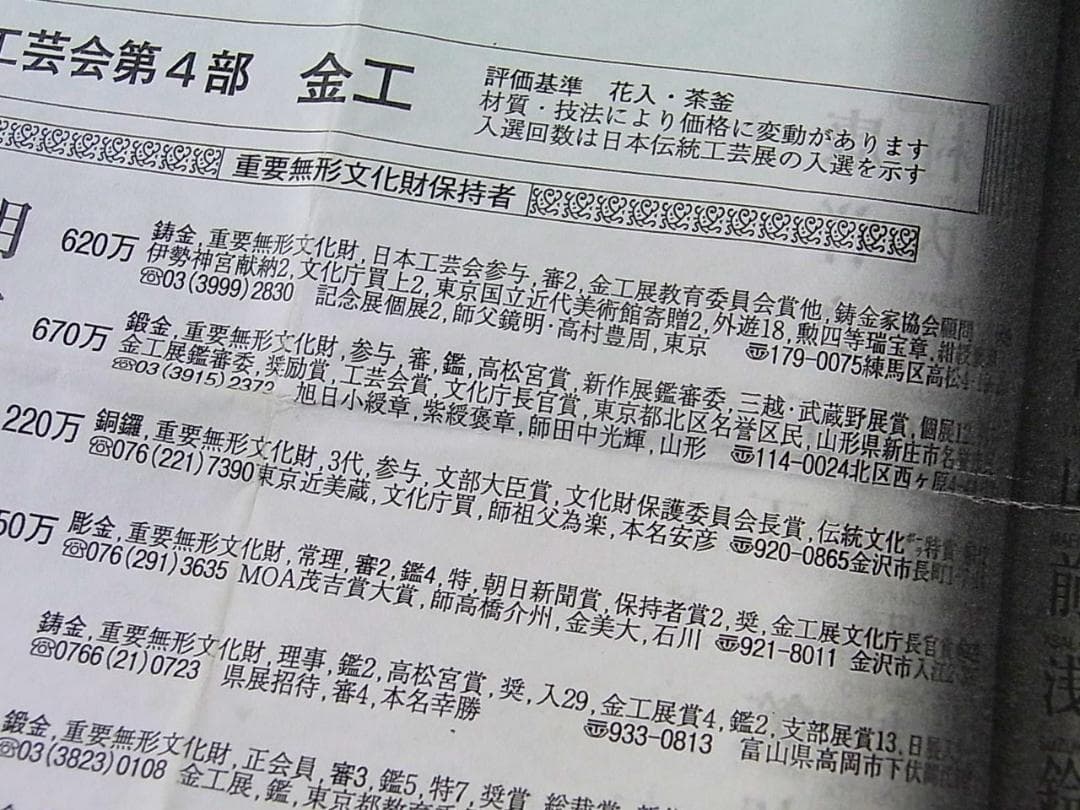 工芸会第4部 金工
評価基準 花入・茶釜
材質・技法により価格に変動があります
入選回数は日本伝統工芸展の入選を示す
重要無形文化財保持者
620万 鋳金,重要無形文化財,日本工芸会参与,審2,金工展教育委員会賞他,鋳金家協会顧問,
伊勢神宮献納2,文化庁買上2,東京国立近代美術館寄贈2,外遊18,勲四等瑞宝章,紺綬
☎03(3999)2830 記念展個展2,師父鏡明・高村豊周,東京 〠179-0075練馬区高松
670万 鍛金,重要無形文化財,参与,審,鑑,高松宮賞,新作展鑑審委,三越・武蔵野展賞,個展12
金工展鑑審委,奨励賞,工芸会賞,文化庁長官賞,東京都北区名誉区民,山形県新庄市名誉
☎03(3915)2372 旭日小綬章,紫綬褒章,師田中光輝,山形 〠114-0024北区西ヶ原4
220万 銅鑼,重要無形文化財,3代,参与,文部大臣賞,文化財保護委員会長賞,伝統文化ポーラ特賞
☎076(221)7390東京近美蔵,文化庁買,師祖父為楽,本名安彦 〠920-0865金沢市長町1
50万 彫金,重要無形文化財,常理,審2,鑑4,特,朝日新聞賞,保持者賞2,奨,金工展文化庁長官
☎076(291)3635 MOA茂吉賞大賞,師高橋介州,金美大,石川 〠921-8011 金沢市入江
鋳金,重要無形文化財,理事,鑑2,高松宮賞,奨,入29,金工展賞4,鑑2,支部展賞13,日
☎0766(21)0723 県展招待,審4,本名幸勝 〠933-0813 富山県高岡市下伏間
鍛金,重要無形文化財,正会員,審3,鑑5,特7,奨賞,総裁賞,新
☎03(3823)0108 金工展,鑑,東京都教育
前
浅
鈴